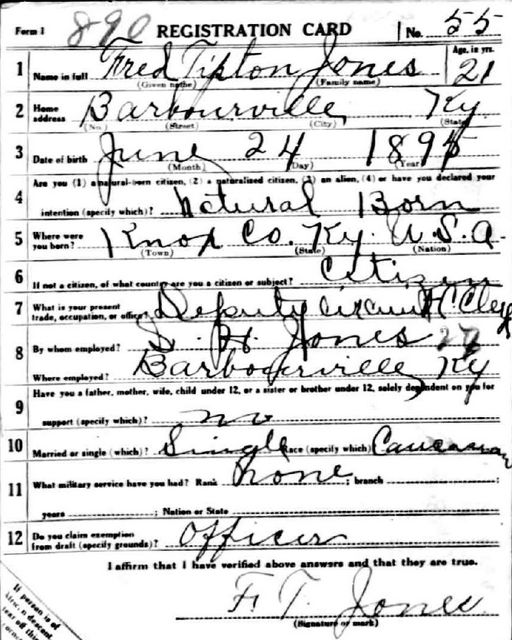 Form 1 890 REGISTRATION CARD No. 55
1 Name in full Fred Tipton Jones Age, in yrs. 21
(Given name) (Family name)
2 Home address Barbourville Ky
(No.) (Street) (City) (State)
3 Date of birth June 24 1895
(Month) (Day) (Year)
4 Are you (1) a natural-born citizen, (2) a naturalized citizen, (3) an alien, (4) or have you declared your
intention (specify which)? Natural Born
5 Where were you born? Knox Co. Ky. U.S.A
(Town) (State) (Nation)
6 If not a citizen, of what country are you a citizen or subject? Citizen
7 What is your present trade, occupation, or office? Deputy Circuit Ct Clerk
8 By whom employed? Jones
Where employed? Barbourville, Ky
9 Have you a father, mother, wife, child under 12, or a sister or brother under 12, solely dependent on you for
support (specify which)? no
10 Married or single (which)? Single Race (specify which)? Caucasian
11 What military service have you had? Rank none ; branch ;
years ; Nation or State
12 Do you claim exemption from draft (specify grounds)? Officer
I affirm that I have verified above answers and that they are true.
F. T. Jones
(Signature or mark)
If person is of